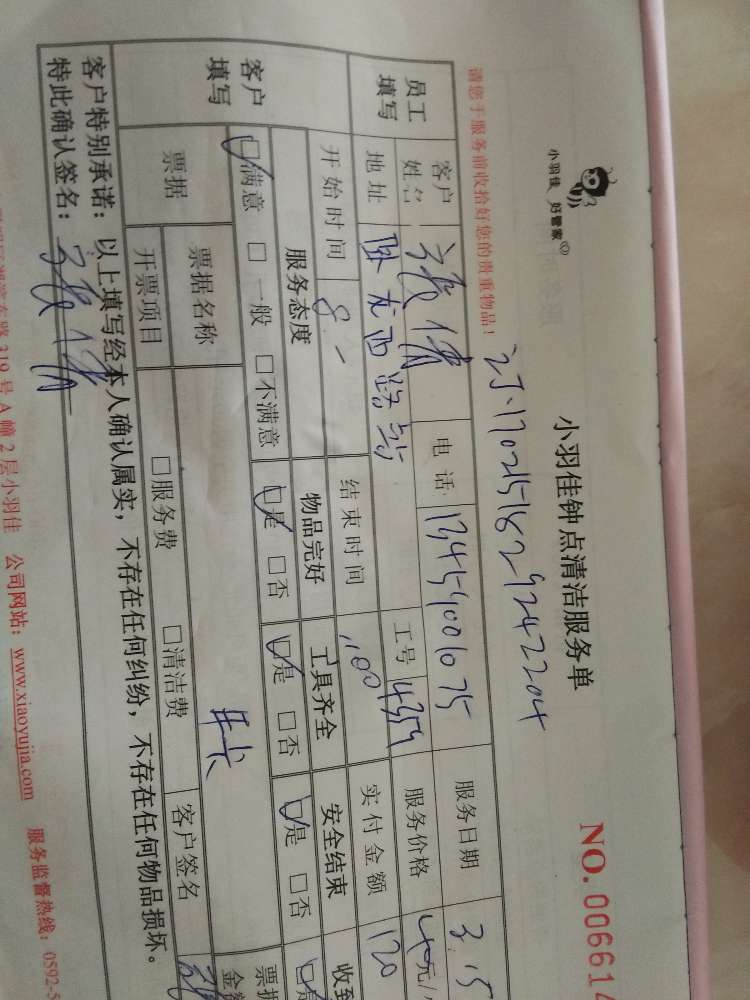 小羽佳 好管家
小羽佳钟点清洁服务单
NO. 006614
请您于服务前收拾好您的贵重物品!
员工填写
客户姓名 电话 服务日期 3.15
地址 工号 4359 服务价格 40元/
开始时间 8 结束时间 实付金额 120
客户填写
服务态度 物品完好 工具齐全 安全结束 收到
□满意 □一般 □不满意 □是 □否 □是 □否 □是 □否 □是
票据 票据名称 开卡 票据金额
开票项目 □服务费 □清洁费 客户签名
客户特别承诺:以上填写经本人确认属实,不存在任何纠纷,不存在任何物品损坏。
特此确认签名:
路 319 号 A 幢 2 层小羽佳 公司网站:www.xiaoyujia.com 服务监督热线:0592-5